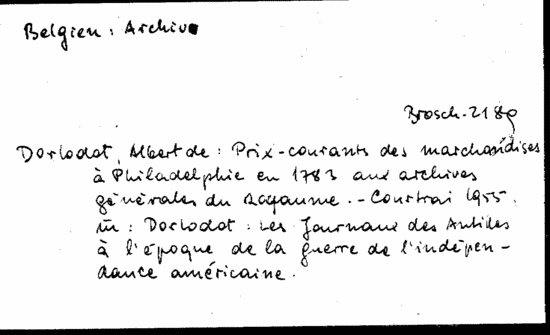 Belgien: Archive
Brosch-2189
Dorlodot, Albert de: Prix-courants des marchandises
à Philadelphie en 1783 aux archives
générales du Royaume. - Courtrai 1955.
in: Dorlodot: Les Journaux des Antilles
à l'époque de la guerre de l'indépen-
dance américaine.